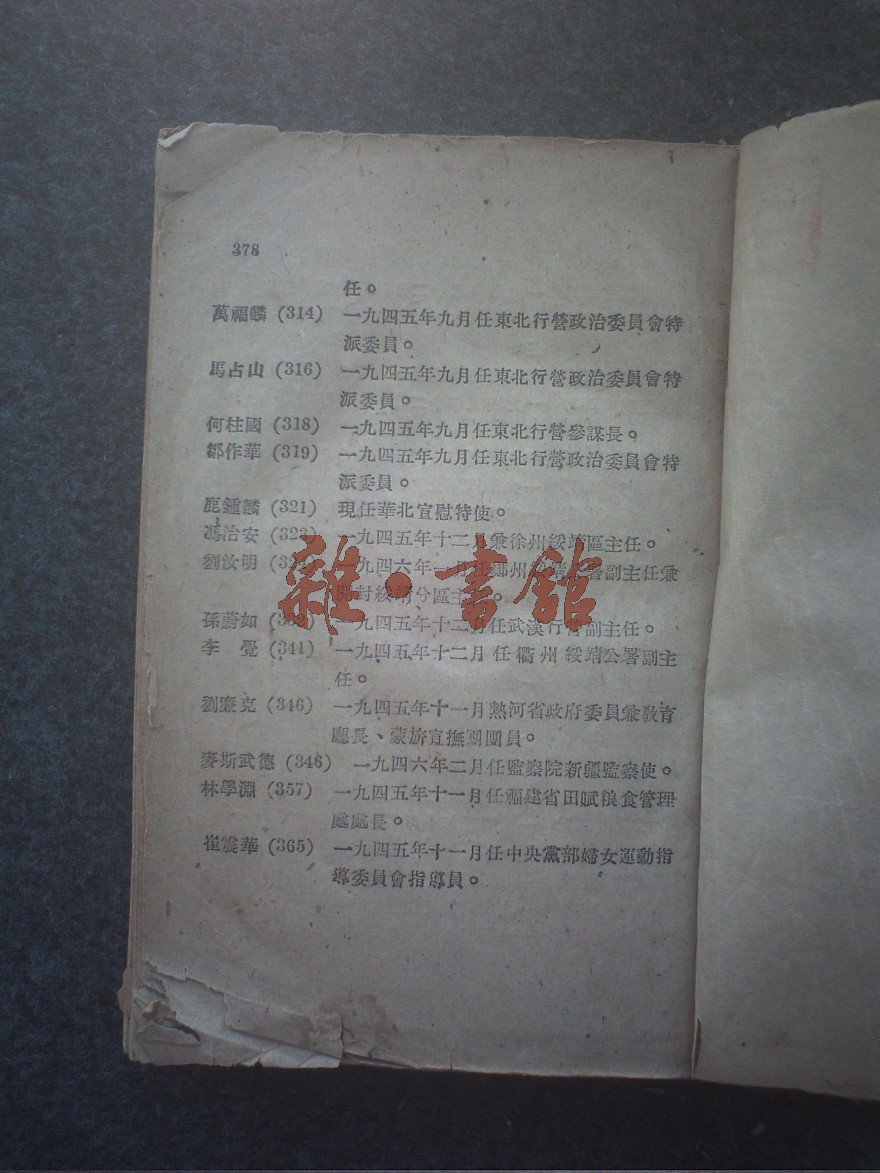 378
任。
萬福麟 (314) 一九四五年九月任東北行營政治委員會特
派委員。
馬占山 (316) 一九四五年九月任東北行營政治委員會特
派委員。
何柱國 (318) 一九四五年九月任東北行營參謀長。
鄒作華 (319) 一九四五年九月任東北行營政治委員會特
派委員。
鹿鍾麟 (321) 現任華北宣慰特使。
馮治安 (323) 一九四五年十二月兼徐州綏靖區主任。
劉汝明 一九四六年一月任鄭州綏靖公署副主任兼
開封綏靖分區主任。
孫蔚如 一九四五年十二月任武漢行營副主任。
李覺 (341) 一九四五年十二月任衢州綏靖公署副主
任。
劉廉克 (346) 一九四五年十一月熱河省政府委員兼教育
廳長、蒙旂宣撫團團員。
麥斯武德 (346) 一九四六年二月任監察院新疆監察使。
林學淵 (357) 一九四五年十一月任福建省田賦粮食管理
處處長。
崔震華 (365) 一九四五年十一月任中央黨部婦女運動指
導委員會指導員。
雜·書館